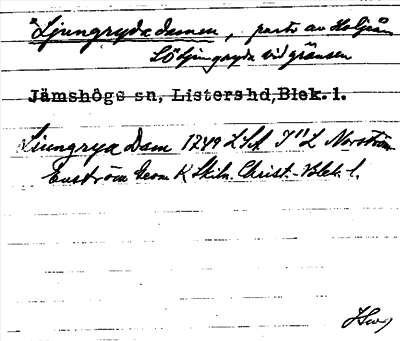 "Ljungryda dammen, parti av Holjeån
S Ljungryda vid gränsen
Jämshögs sn, Listershd,Blek.l.
Liungrya Dam 1749 LSA J"L Norström
Enström Geom K Skiln. Christ.-Blek. l.